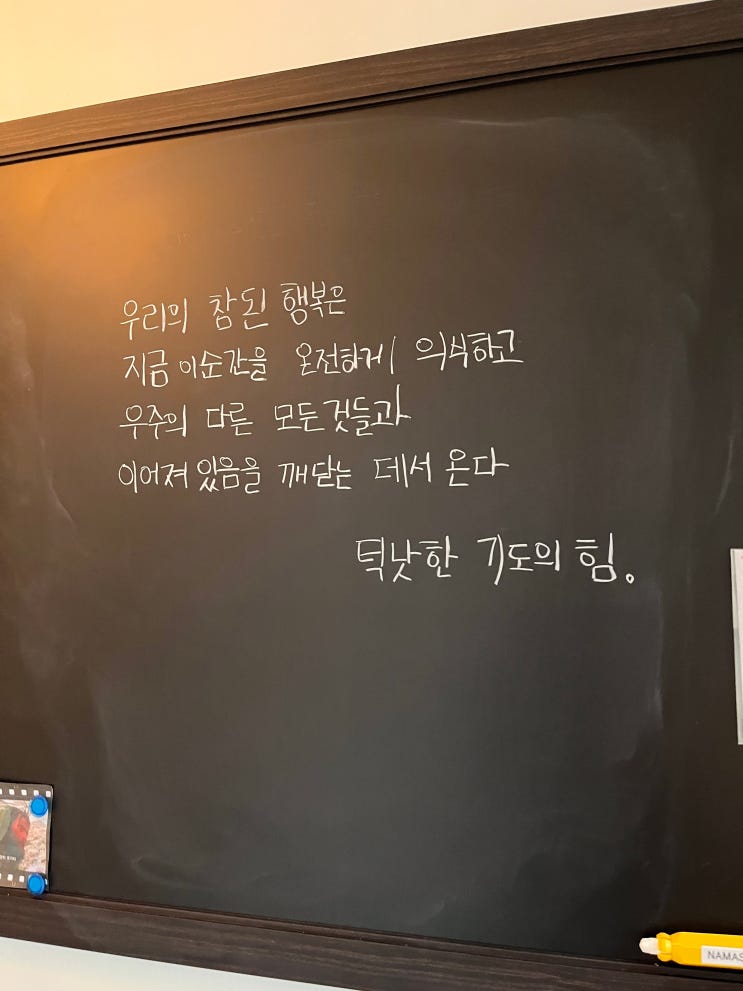 우리의 참된 행복은
지금 이순간을 온전하게 의식하고
우주의 다른 모든것들과
이어져 있음을 깨닫는 데서 온다
틱낫한 기도의 힘.
NAMAS